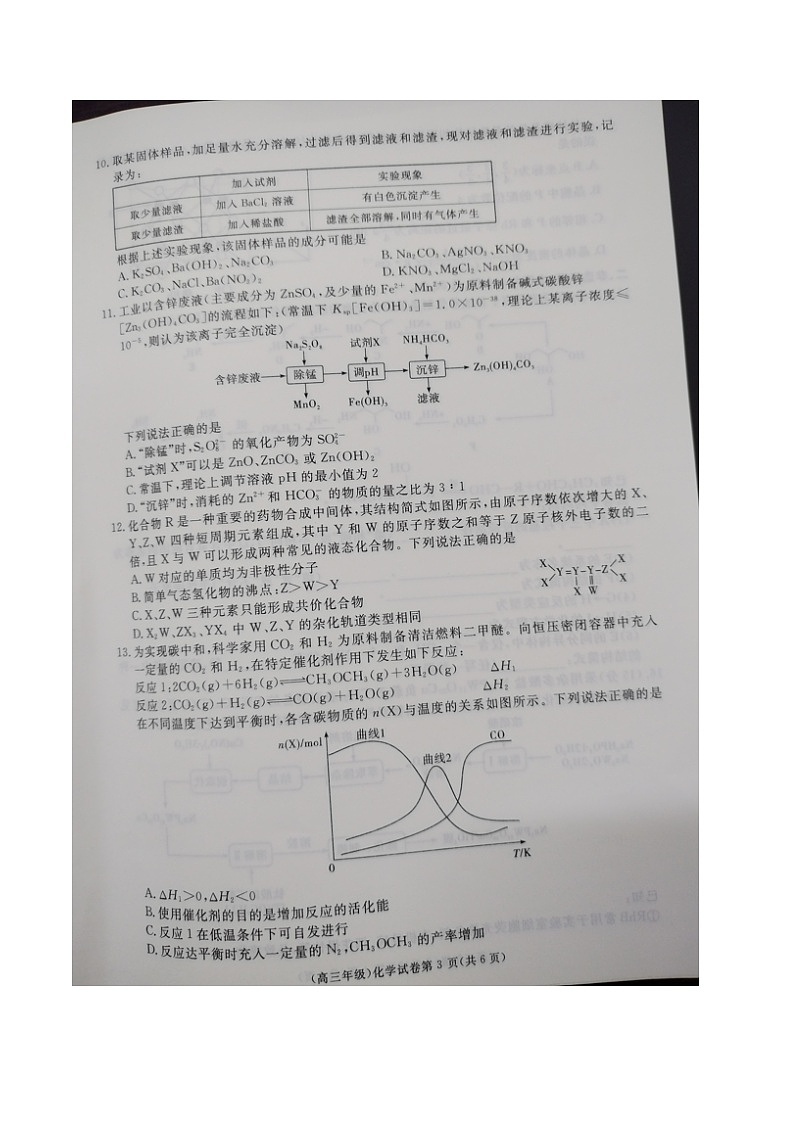 10. 取某固体样品,加足量水充分溶解,过滤后得到滤液和滤渣,现对滤液和滤渣进行实验,记
录为:
加入试剂 实验现象
取少量滤液 加入 BaCl₂ 溶液 有白色沉淀产生
取少量滤渣 加入稀盐酸 滤渣全部溶解,同时有气体产生
根据上述实验现象,该固体样品的成分可能是
A. K₂SO₄、Ba(OH)₂、Na₂CO₃ B. Na₂CO₃、AgNO₃、KNO₃
C. K₂CO₃、NaCl、Ba(NO₃)₂ D. KNO₃、MgCl₂、NaOH
11. 工业以含锌废液(主要成分为 ZnSO₄,及少量的 Fe²⁺、Mn²⁺)为原料制备碱式碳酸锌
[Zn₃(OH)₄CO₃]的流程如下:(常温下 Kₛₚ[Fe(OH)₃]=1.0×10⁻³⁸,理论上某离子浓度≤
10⁻⁵,则认为该离子完全沉淀)
Na₂S₂O₈ 试剂X NH₄HCO₃
含锌废液 除锰 调pH 沉锌 Zn₃(OH)₄CO₃
MnO₂ Fe(OH)₃ 滤液
下列说法正确的是
A.“除锰”时,S₂O₈²⁻ 的氧化产物为 SO₄²⁻
B.“试剂 X”可以是 ZnO、ZnCO₃ 或 Zn(OH)₂
C. 常温下,理论上调节溶液 pH 的最小值为 2
D.“沉锌”时,消耗的 Zn²⁺ 和 HCO₃⁻ 的物质的量之比为 3∶1
12. 化合物 R 是一种重要的药物合成中间体,其结构简式如图所示,由原子序数依次增大的 X、
Y、Z、W 四种短周期元素组成,其中 Y 和 W 的原子序数之和等于 Z 原子核外电子数的二
倍,且 X 与 W 可以形成两种常见的液态化合物。下列说法正确的是
A. W 对应的单质均为非极性分子
B. 简单气态氢化物的沸点:Z>W>Y
C. X、Z、W 三种元素只能形成共价化合物
D. X₂W、ZX₃、YX₄ 中 W、Z、Y 的杂化轨道类型相同
X X
Y=Y-Y-Z
X X W X
13. 为实现碳中和,科学家用 CO₂ 和 H₂ 为原料制备清洁燃料二甲醚。向恒压密闭容器中充入
一定量的 CO₂ 和 H₂,在特定催化剂作用下发生如下反应:
反应 1:2CO₂(g)+6H₂(g)⇌CH₃OCH₃(g)+3H₂O(g) ΔH₁
反应 2:CO₂(g)+H₂(g)⇌CO(g)+H₂O(g) ΔH₂
在不同温度下达到平衡时,各含碳物质的 n(X)与温度的关系如图所示。下列说法正确的是
n(X)/mol 曲线1 CO
曲线2
0 T/K
A. ΔH₁>0,ΔH₂<0
B. 使用催化剂的目的是增加反应的活化能
C. 反应 1 在低温条件下可自发进行
D. 反应达平衡时充入一定量的 N₂,CH₃OCH₃ 的产率增加
(高三年级)化学试卷第 3 页(共 6 页)